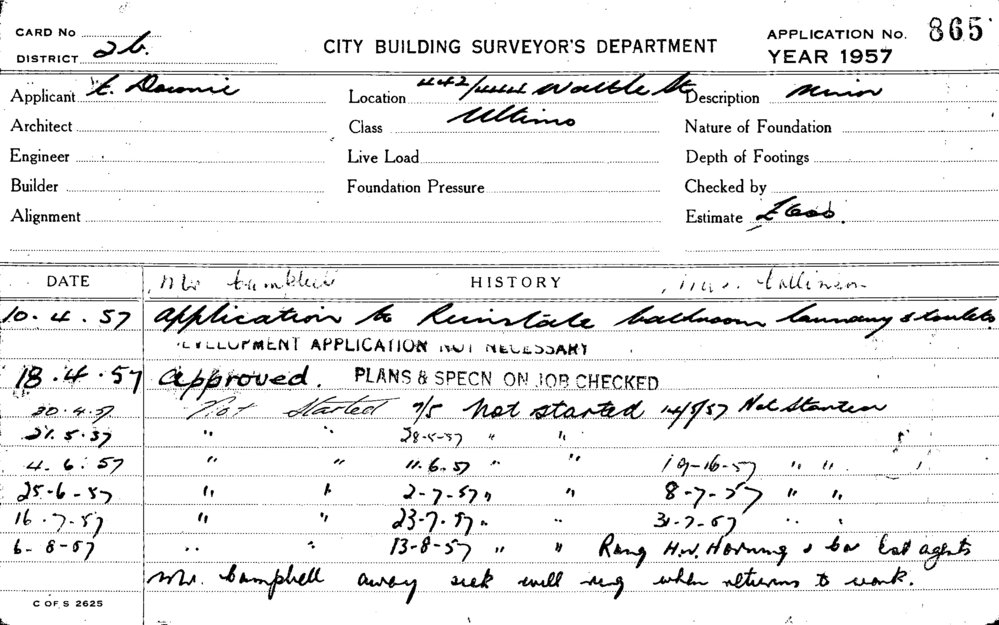 CARD No
DISTRICT 2b.
CITY BUILDING SURVEYOR'S DEPARTMENT
APPLICATION No. 865
YEAR 1957
Applicant E. Downie Location 442/444 Wattle St Description Minor
Architect Class Ultimo Nature of Foundation
Engineer Live Load Depth of Footings
Builder Foundation Pressure Checked by
Alignment Estimate £600.
DATE Mr Campbell HISTORY
10.4.57 Application to Reinstate bathroom laundry & toilets
DEVELOPMENT APPLICATION NOT NECESSARY
18.4.57 Approved. PLANS & SPECN ON JOB CHECKED
30.4.57 Not Started 7/5 Not started 14/5/57 Not Started
21.5.57 " " 28-5-57 " "
4.6.57 " " 11.6.57 " " 19-16-57 " "
25-6-57 " " 2-7-57 " " 8-7-57 " "
16.7-57 " " 23-7.57 " " 31-7-57 " "
6-8-57 " " 13-8-57 " " Rang H.W. Horning & Co Est agents
Mr. Campbell away sick will ring when returns to work.
C OF S 2625